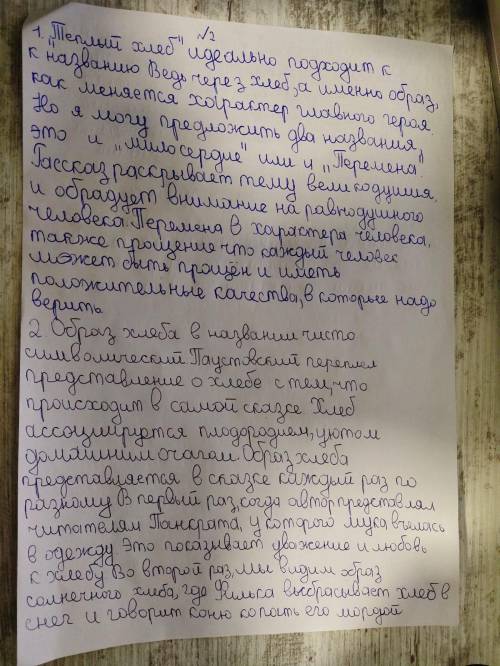 №2
1. "Теплый хлеб" идеально подходит к
к "названию Ведь через хлеб, а именно образ,
как меняется характер главного героя.
Но я могу предложить два названия
это и „милосердие" или и „Перемена".
Рассказ раскрывает тему великодушия,
и обрадует внимание на равнодушного
человека. Перемена в характера человека,
также прощения что каждый человек
может быть прощён и иметь
положительные качества, в которые надо
верить
2 Образ хлеба в названии чисто
символический Паустовский переплел
представление о хлебе с тем, что
происходит в самой сказке Хлеб
ассоциируется плодородием, уютом
домашним очагом. Образ хлеба
представляется в сказке каждый раз по
разному В первый раз, когда автор представлял
читателям Панкрата, у которого мука вьелась
в одежду Это показывает уважение и любовь
к хлебу Во второй раз, мы видим образ
солнечного хлеба, где Филька выбрасывает хлеб в
снег и говорит коню копать его мордой